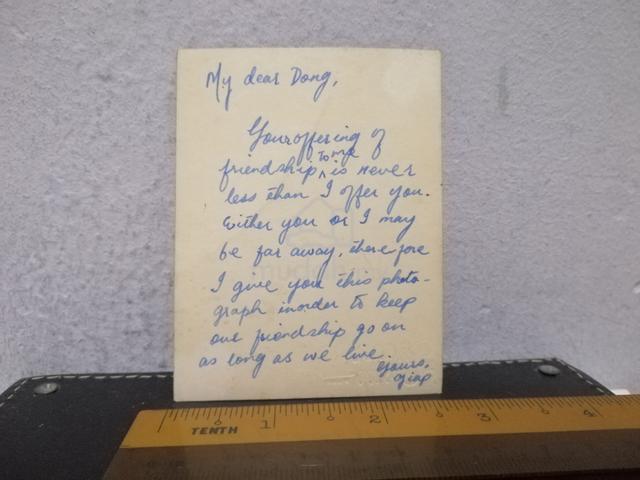 My dear Dong,
Your offering of
friendship to me is never
less than I offer you.
Either you or I may
be far away, therefore
I give you this photo-
graph inorder to keep
our friendship go on
as long as we live.
Yours,
Giap
1 2 3 4
TENTH